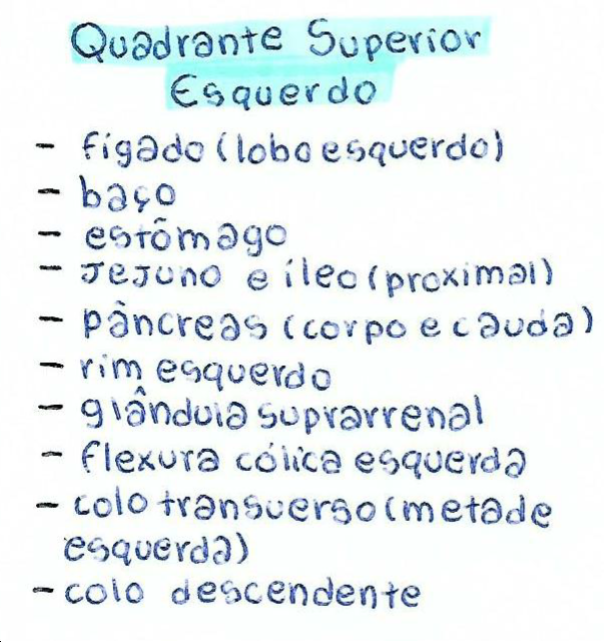 Quadrante Superior
Esquerdo
- fígado (lobo esquerdo)
- baço
- estômago
- Jejuno e íleo (proximal)
- pâncreas (corpo e cauda)
- rim esquerdo
- glândula suprarrenal
- flexura cólica esquerda
- colo transverso (metade
esquerda)
- colo descendente